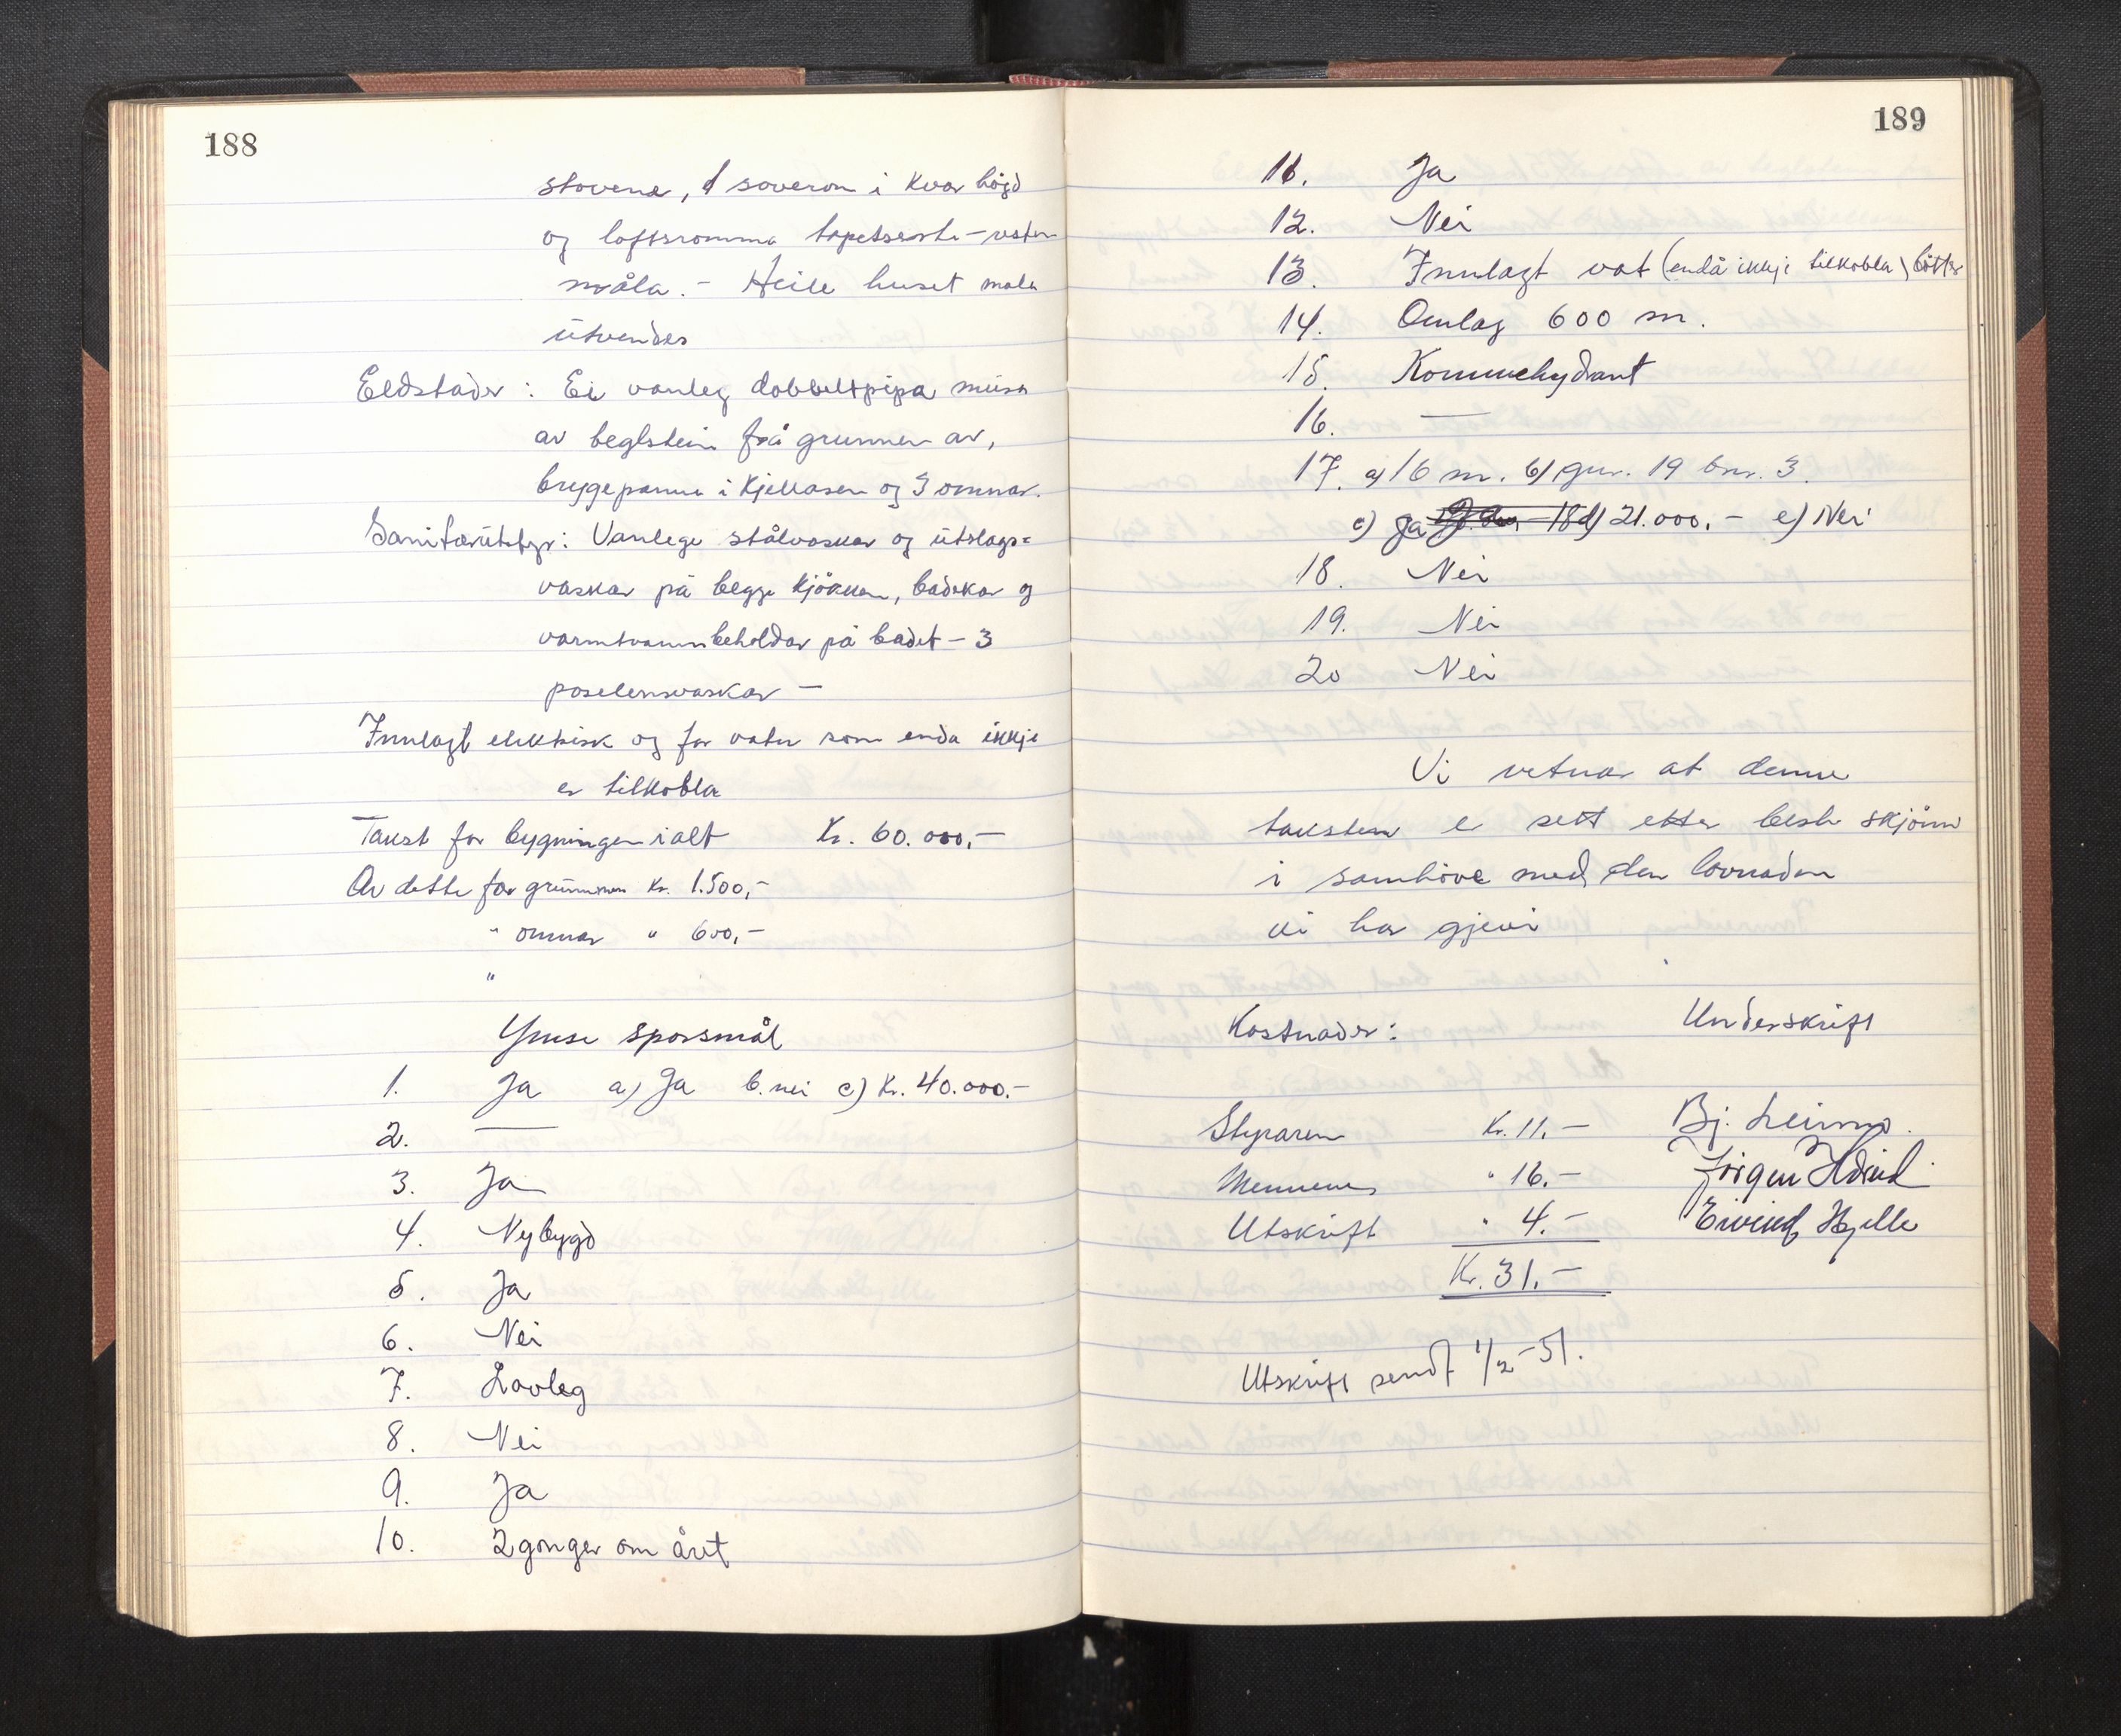 188
stovene, 1 soverom i kvar høgd
og loftsromma tapetserte – resten
måla. – Heile huset mala
utvendes
Eldstader : Ei vanleg dobbeltpipa mura
av teglstein frå grunnen av,
bryggepanne i kjellaren og 3 omnar.
Sanitærutstyr: Vanlege stålvaskar og utslags=
vaskar på begge kjøkken, badekar og
varmtvannbeholdar på badet – 3
poselensvaskar –
Innlagt elektrisk og for vatn som enda ikkje
er tilkobla
Takst for bygningen ialt Kr. 60.000,–
Av dette for grunnmuren Kr. 1.500,–
" omnar " 600,–
"
Ymse sporsmål
1. Ja a) Ja b. nei c) Kr. 40.000.–
2. —
3. Ja
4. Nybygd
5. Ja
6. Nei
7. Lovleg
8. Nei
9. Ja
10. 2 gonger om året
189
11. Ja
12. Nei
13. Innlagt vat (endå ikkje tilkobla) bøtter
14. Omlag 600 m.
15. Kommehydrant
16. —
17. a) 16 m. b) gnr. 19 bnr. 3.
c) Ja d) 21.000,– e) Nei
18. Nei
19. Nei
20 Nei
Vi vetnar at denne
taksten er sett etter beste skjønn
i samhøve med den lovnaden
vi har gjevi
Kostnader: Underskrift
Styraren Kr. 11,– Bj. Leirmo.
Mennene " 16.– Jørgen
Utskrift " 4.– Eivind Hjelle
Kr. 31,–
Utskrift sendt 1/2–51.